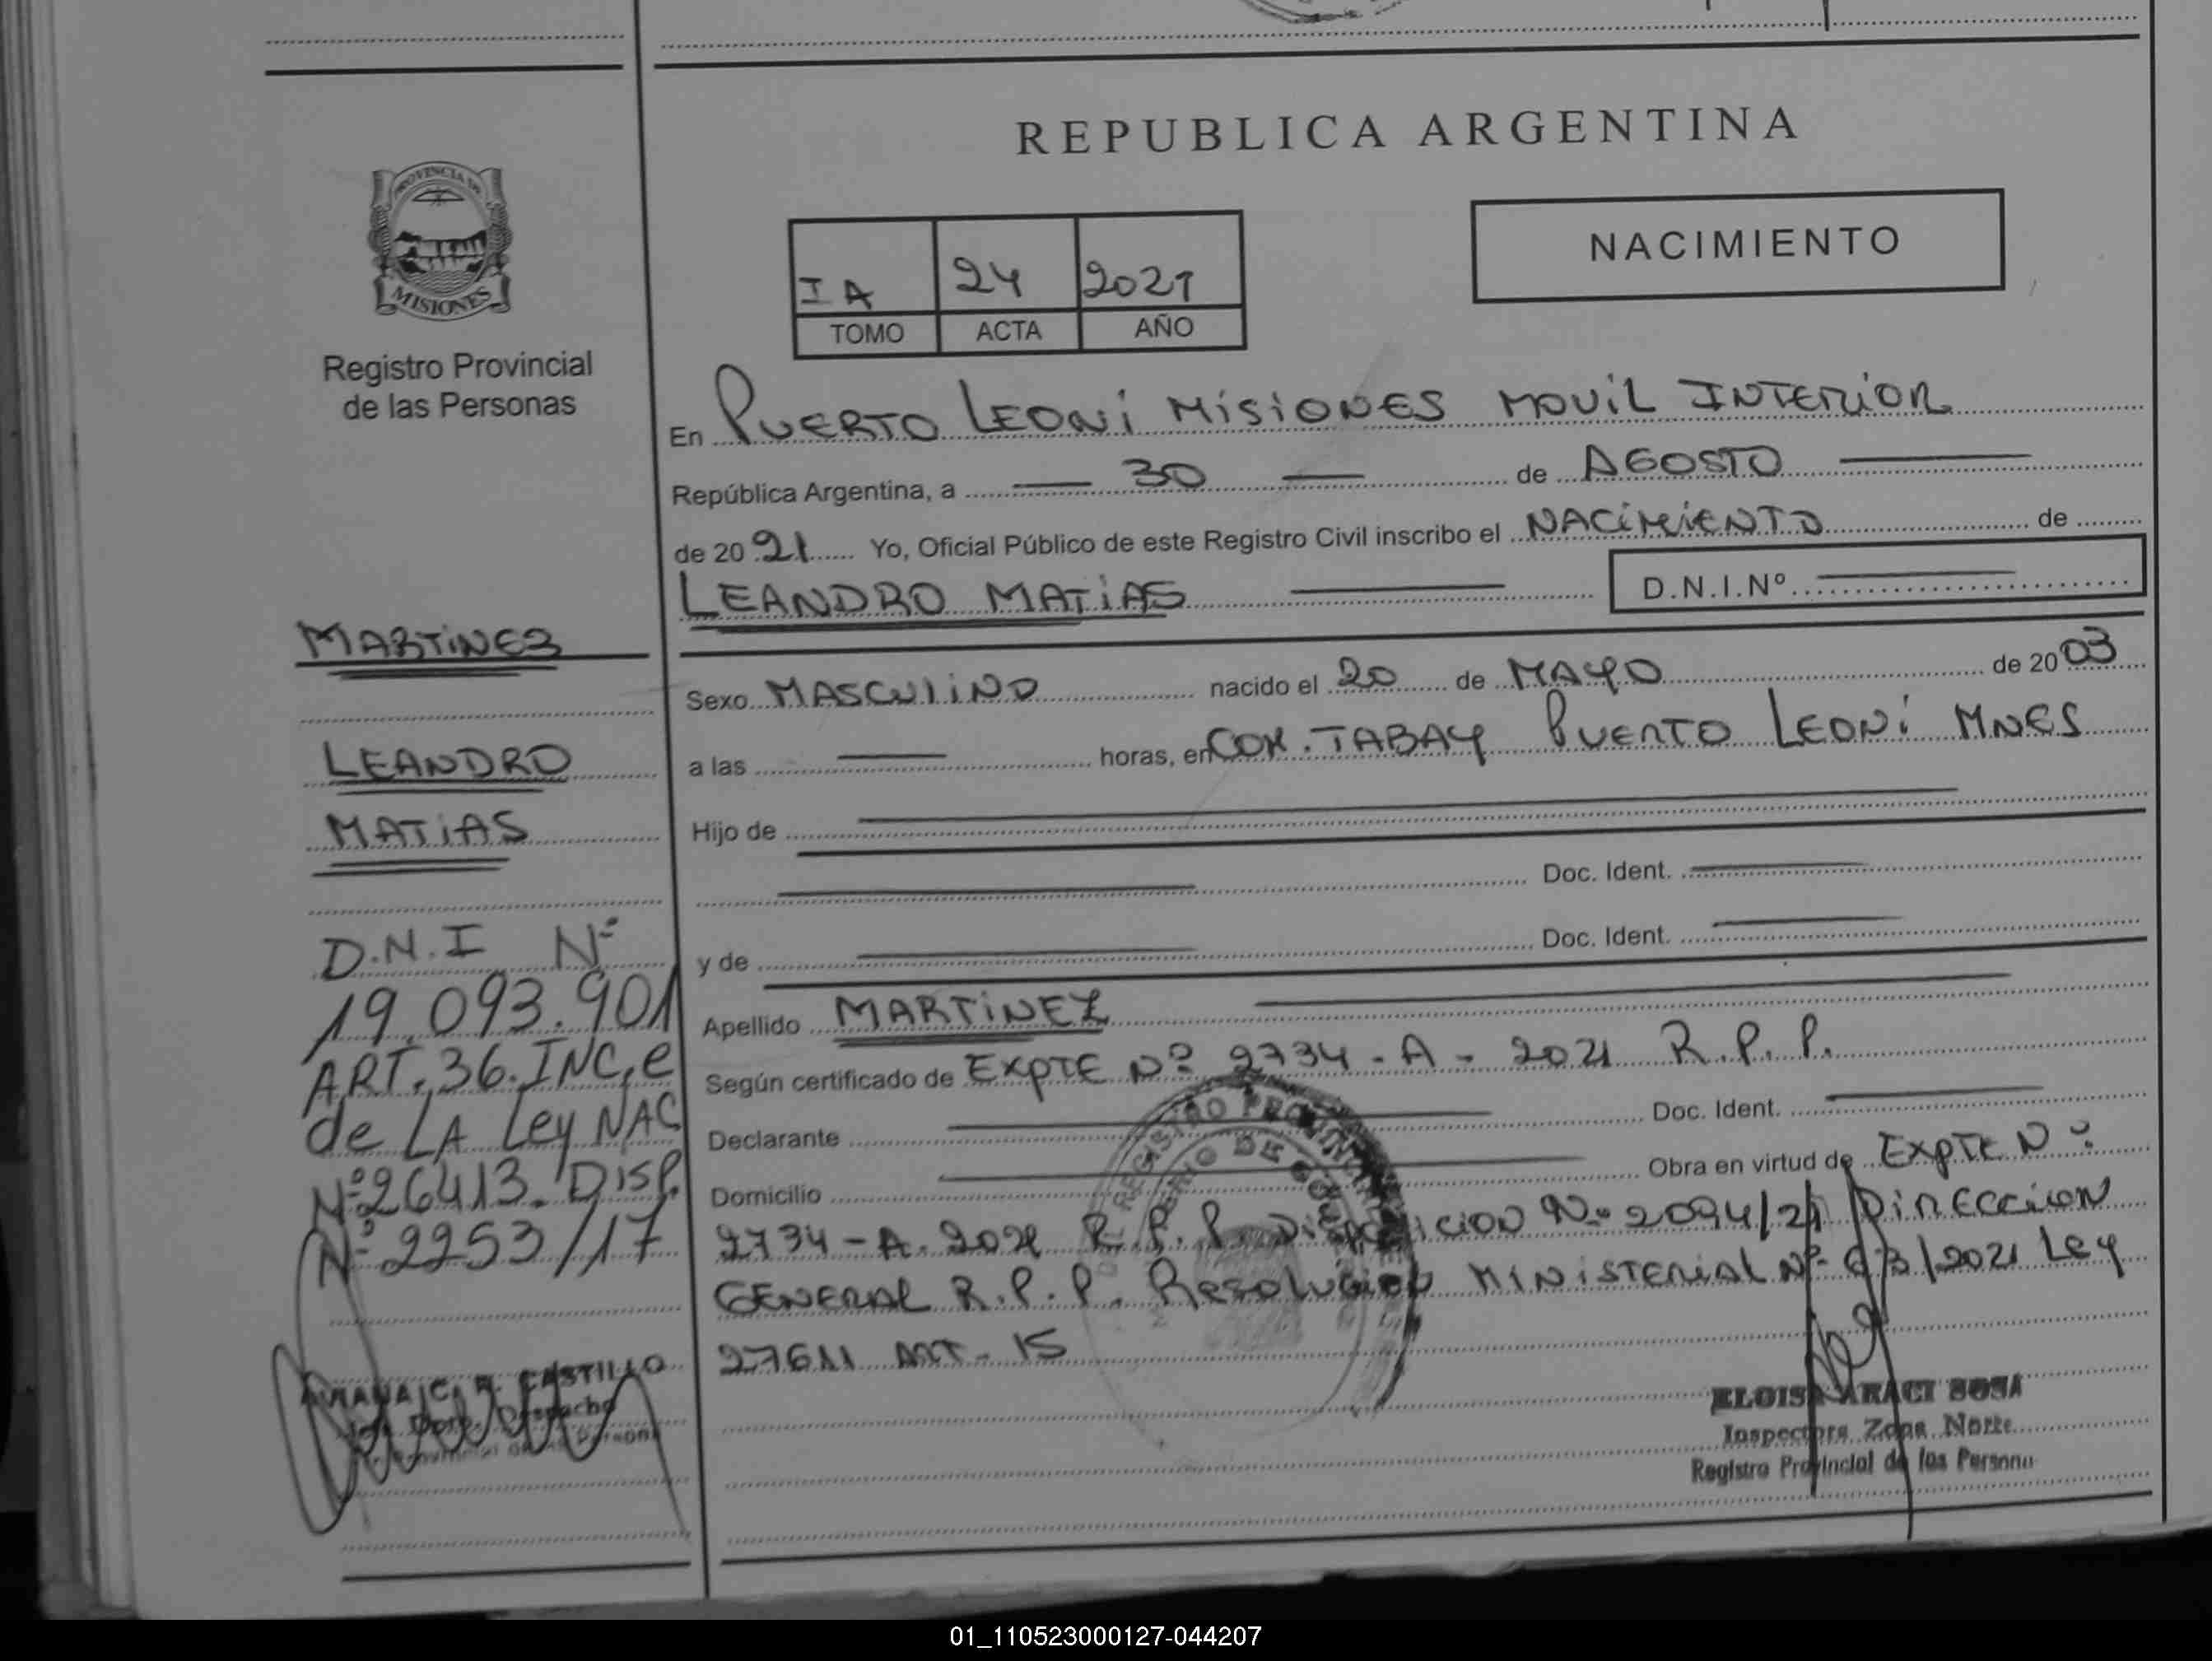 REPUBLICA ARGENTINA
PROVINCIA DE
MISIONES
Registro Provincial
de las Personas
NACIMIENTO
IA 24 2021
TOMO ACTA AÑO
En PUERTO LEONI MISIONES MOVIL INTERIOR
República Argentina, a 30 de AGOSTO
de 20 21 Yo, Oficial Público de este Registro Civil inscribo el NACIMIENTO de
LEANDRO MATIAS D.N.I.Nº
Sexo MASCULINO nacido el 20 de MAYO de 20 03
a las horas, en COM. TABAY PUERTO LEONI MNES
Hijo de
Doc. Ident.
y de Doc. Ident.
Apellido MARTINEZ
Según certificado de EXPTE Nº 2734-A-2021 R.P.P.
Declarante Doc. Ident.
Domicilio Obra en virtud de EXPTE Nº
2734-A-2021 R.P.P. DISPOSICION Nº 2094/21 DIRECCION
GENERAL R.P.P. Resolución MINISTERIAL Nº /2021 Ley
27611 ART. 15
MARTINEZ
LEANDRO
MATIAS
D.N.I Nº
19.093.901
ART. 36. INC. e
de LA Ley NAC
Nº 26413. DISP.
Nº 2253/17
C. CASTILLO
Despacho
ELOISA ARACI SOSA
Inspectora Zona Norte
Registro Provincial de las Persona
01_110523000127-044207